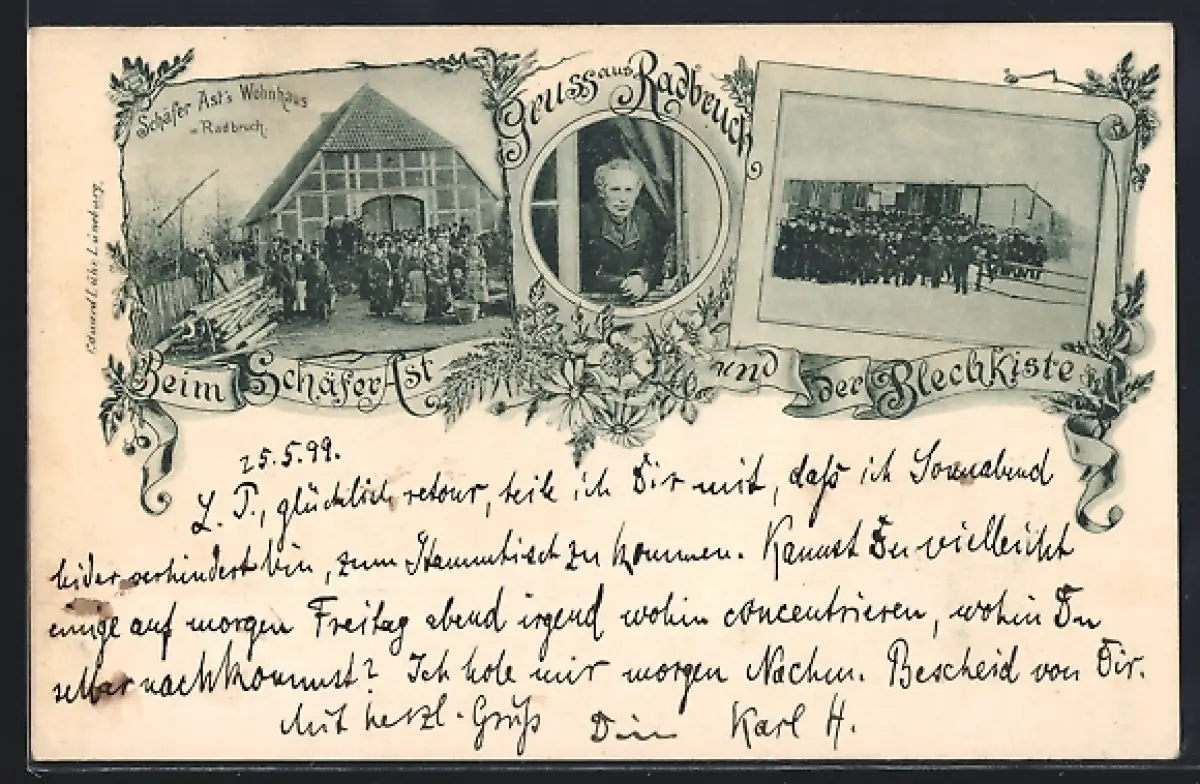 Schäfer Ast's Wohnhaus
in Radbruch.
Gruss aus Radbruch
Eduard Lühr, Lüneburg.
Beim Schäfer Ast und der Blechkiste
25.5.99.
L. P., glücklich retour, teile ich Dir mit, daß ich Sonnabend
leider verhindert bin, zum Stammtisch zu kommen. Kannst Du vielleicht
einige auf morgen Freitag abend irgend wohin concentrieren, wohin Du
selber nachkommst? Ich hole mir morgen Nachm. Bescheid von Dir.
Mit herzl. Gruß Dein Karl H.